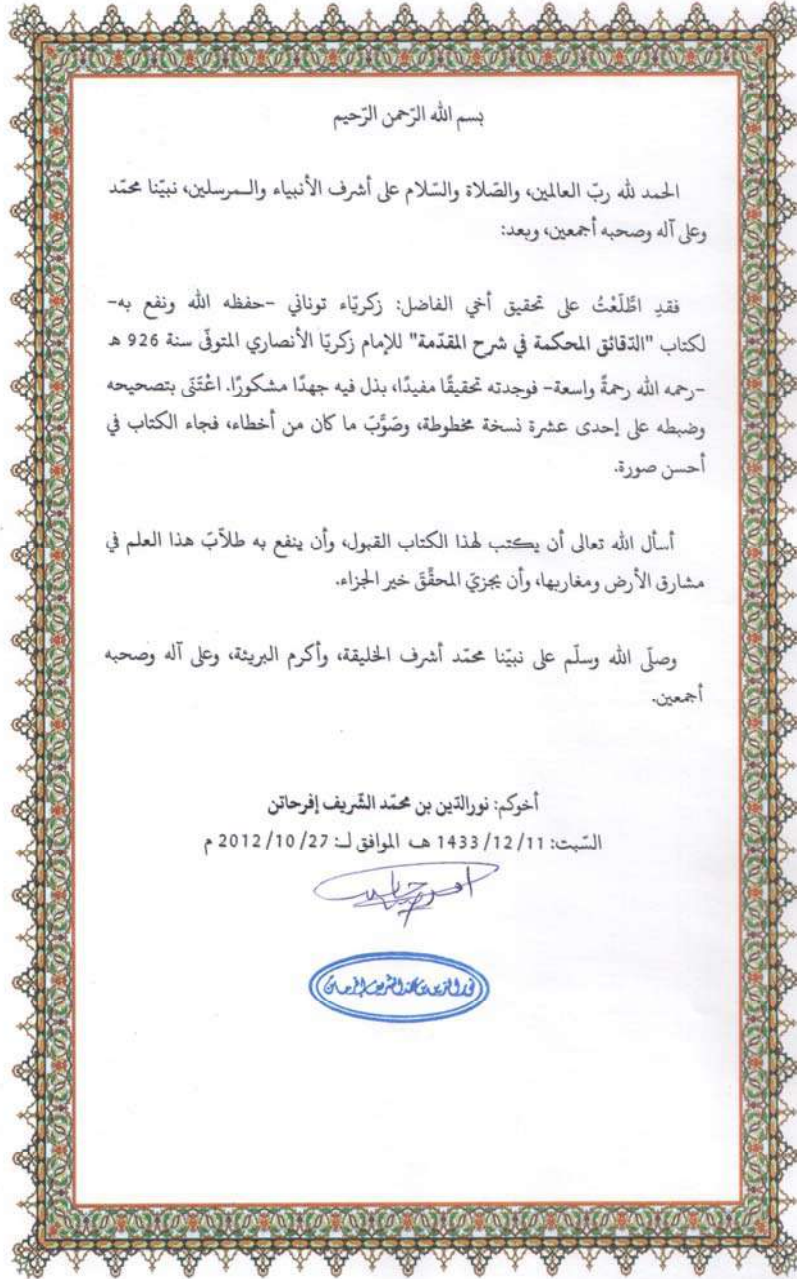 بسم الله الرّحمن الرّحيم
الحمد لله ربّ العالمين، والصّلاة والسّلام على أشرف الأنبياء والـمرسلين، نبيّنا محمّد
وعلى آله وصحبه أجمعين، وبعد:
فقدِ اطَّلَعْتُ على تحقيق أخي الفاضل: زكريّاء توناني -حفظه الله ونفع به-
لكتاب "الدّقائق المحكمة في شرح المقدّمة" للإمام زكريّا الأنصاري المتوفّى سنة 926 هـ
-رحمه الله رحمةً واسعة- فوجدته تحقيقًا مفيدًا، بذل فيه جهدًا مشكورًا. اعْتَنَى بتصحيحه
وضبطه على إحدى عشرة نسخة مخطوطة، وصَوَّبَ ما كان من أخطاء، فجاء الكتاب في
أحسن صورة.
أسأل الله تعالى أن يكتب لهذا الكتاب القبول، وأن ينفع به طلاّبَ هذا العلم في
مشارق الأرض ومغاربها، وأن يجزيَ المحقِّقَ خير الجزاء.
وصلّى الله وسلّم على نبيّنا محمّد أشرف الخليقة، وأكرم البريئة، وعلى آله وصحبه
أجمعين.
أخوكم: نورالدّين بن محمّد الشّريف إفرحاتن
السّبت: 11/ 12/ 1433 هـ الموافق لـ: 27/ 10/ 2012 م
نور الدين بن محمد الشريف إفرحاتن